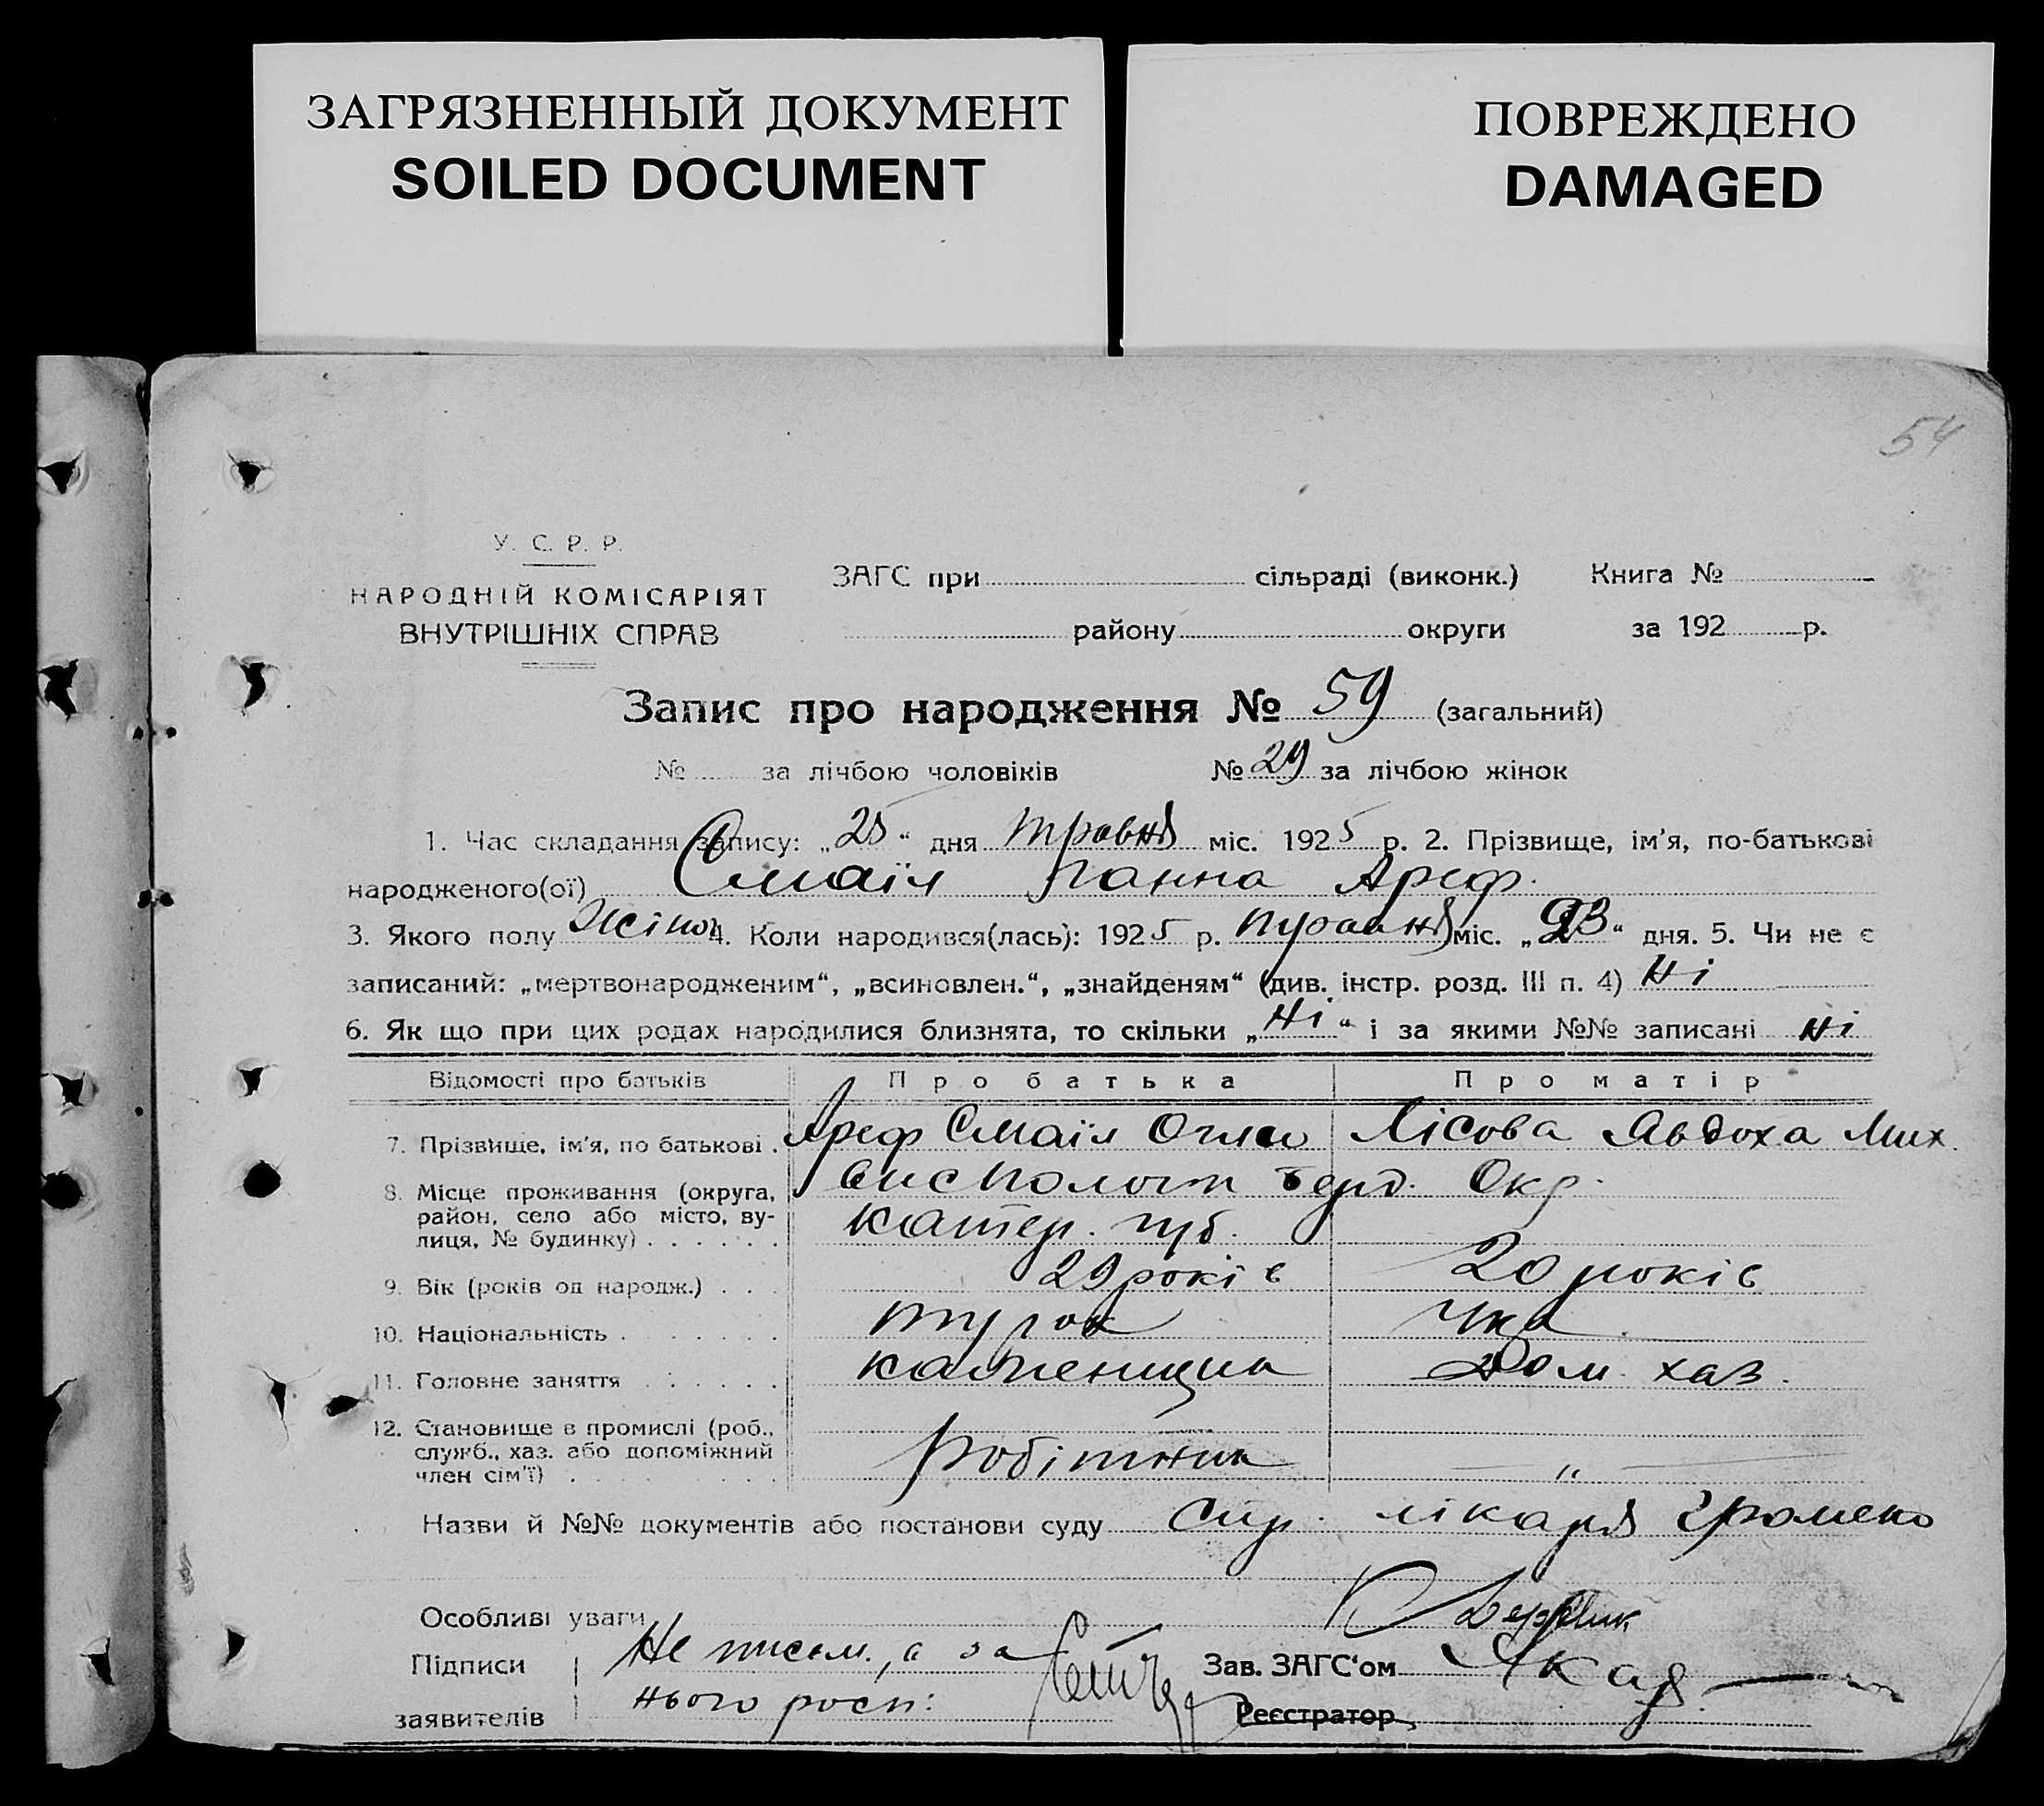 ЗАГРЯЗНЕННЫЙ ДОКУМЕНТ
SOILED DOCUMENT
ПОВРЕЖДЕНО
DAMAGED
54
У. С. Р. Р.
НАРОДНІЙ КОМІСАРІЯТ
ВНУТРІШНІХ СПРАВ
ЗАГС при сільраді (виконк.) Книга №
району округи за 192 р.
Запис про народження № 59 (загальний)
№ за лічбою чоловіків № 29 за лічбою жінок
1. Час складання запису: „25“ дня травня міс. 1925 р. 2. Прізвище, ім'я, по-батькові
народженого(ої) Смаїл Ганна Ареф.
3. Якого полу Жіноч 4. Коли народився(лась): 1925 р. травня міс. „23“ дня. 5. Чи не є
записаний: „мертвонародженим“, „всиновлен.“, „знайденям“ (див. інстр. розд. III п. 4) Ні
6. Як що при цих родах народилися близнята, то скільки „Ні“ і за якими №№ записані Ні
Відомості про батьків Про батька Про матір
7. Прізвище, ім'я, по батькові . Ареф Смаїл Огли Лісова Явдоха Мих.
8. Місце проживання (округа, район, село або місто, вулиця, № будинку) Окр.
Катер. губ.
9. Вік (років од народж.) 29 років 20 років
10. Національність турок Укр.
11. Головне заняття каменщик Дом. хаз.
12. Становище в промислі (роб., служб., хаз. або допоміжний член сім'ї) робітник "
Назви й №№ документів або постанови суду Спр. лікаря Громеко
Особливі уваги
Підписи Не письм., а за Зав. ЗАГС‘ом
заявителів нього росп: Реєстратор